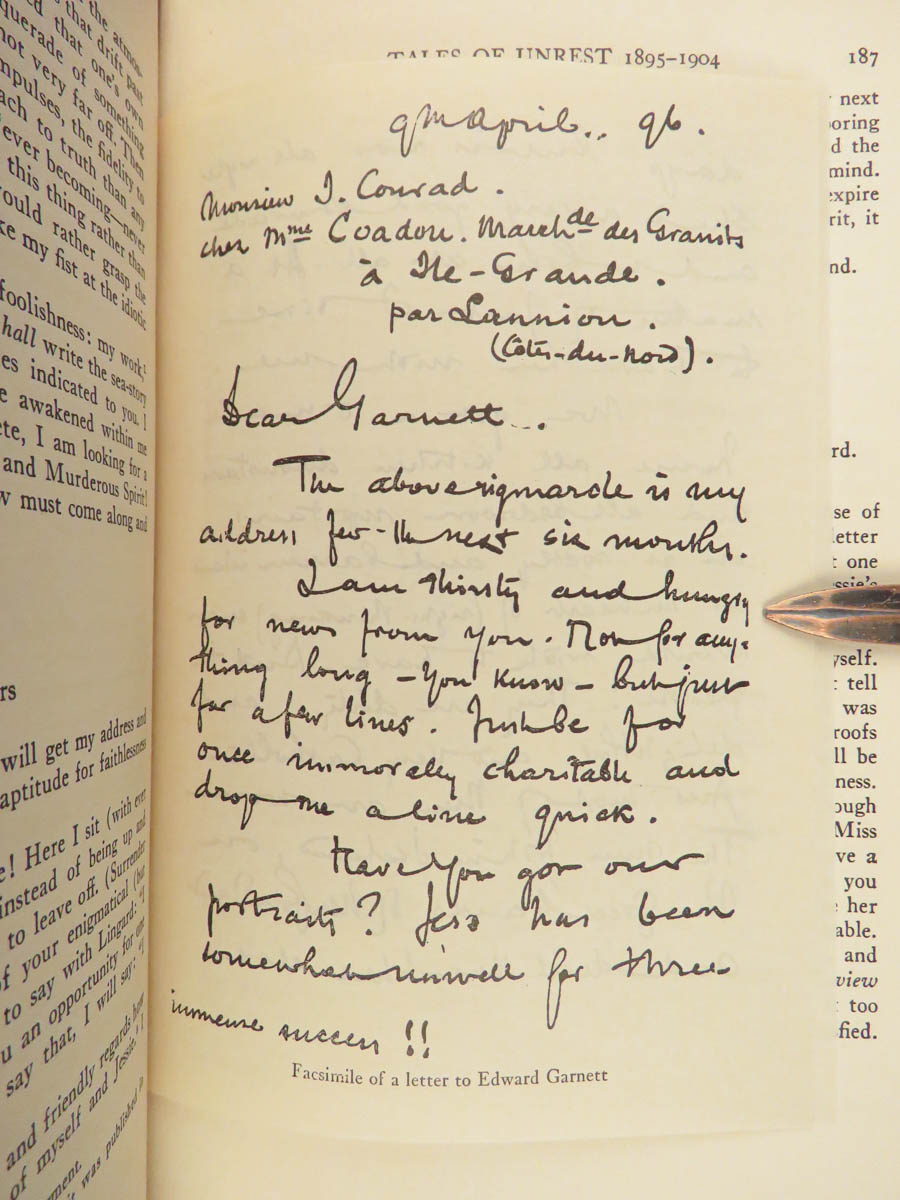 the atmos-
that drift past
querade of something
ed that one's own
not very far off. Then
mpulses, the fidelity to
ach to truth than any
ever becoming—never
this thing rather than
would rather grasp the
ke my fist at the idiotic
foolishness: my work,
hall write the sea-story
es indicated to you. I
e awakened within me
ete, I am looking for a
and Murderous Spirit!
w must come along and
rs
will get my address and
aptitude for faithlessness
e! Here I sit (with ever
instead of being up and
to leave off. (Surrender
of your enigmatical (but
to say with Lingard: "I
u an opportunity for one
say that, I will say: "I
and friendly regards
of myself and Jessie, I
was published in
TALES OF UNREST 1895–1904
187
9th April.. 96.
Monsieur J. Conrad.
chez Mme Coadou. Marchde des Granits
à Ile-Grande.
par Lannion.
(Côtes-du-Nord).
Dear Garnett...
The above rigmarole is my
address for the next six months.
I am thirsty and hungry
for news from you. Not for any-
thing long – you know – but just
for a few lines. Just be for
once immorally charitable and
drop me a line quick.
Have you got our
portraits? Jess has been
somewhat unwell for three
immense success!!
Facsimile of a letter to Edward Garnett
next
oring
d the
mind.
expire
rit, it
nd.
rd.
se of
letter
t one
ssie's
yself.
: tell
was
roofs
ll be
ness.
ough
Miss
ve a
you
her
able.
and
view
too
fied.